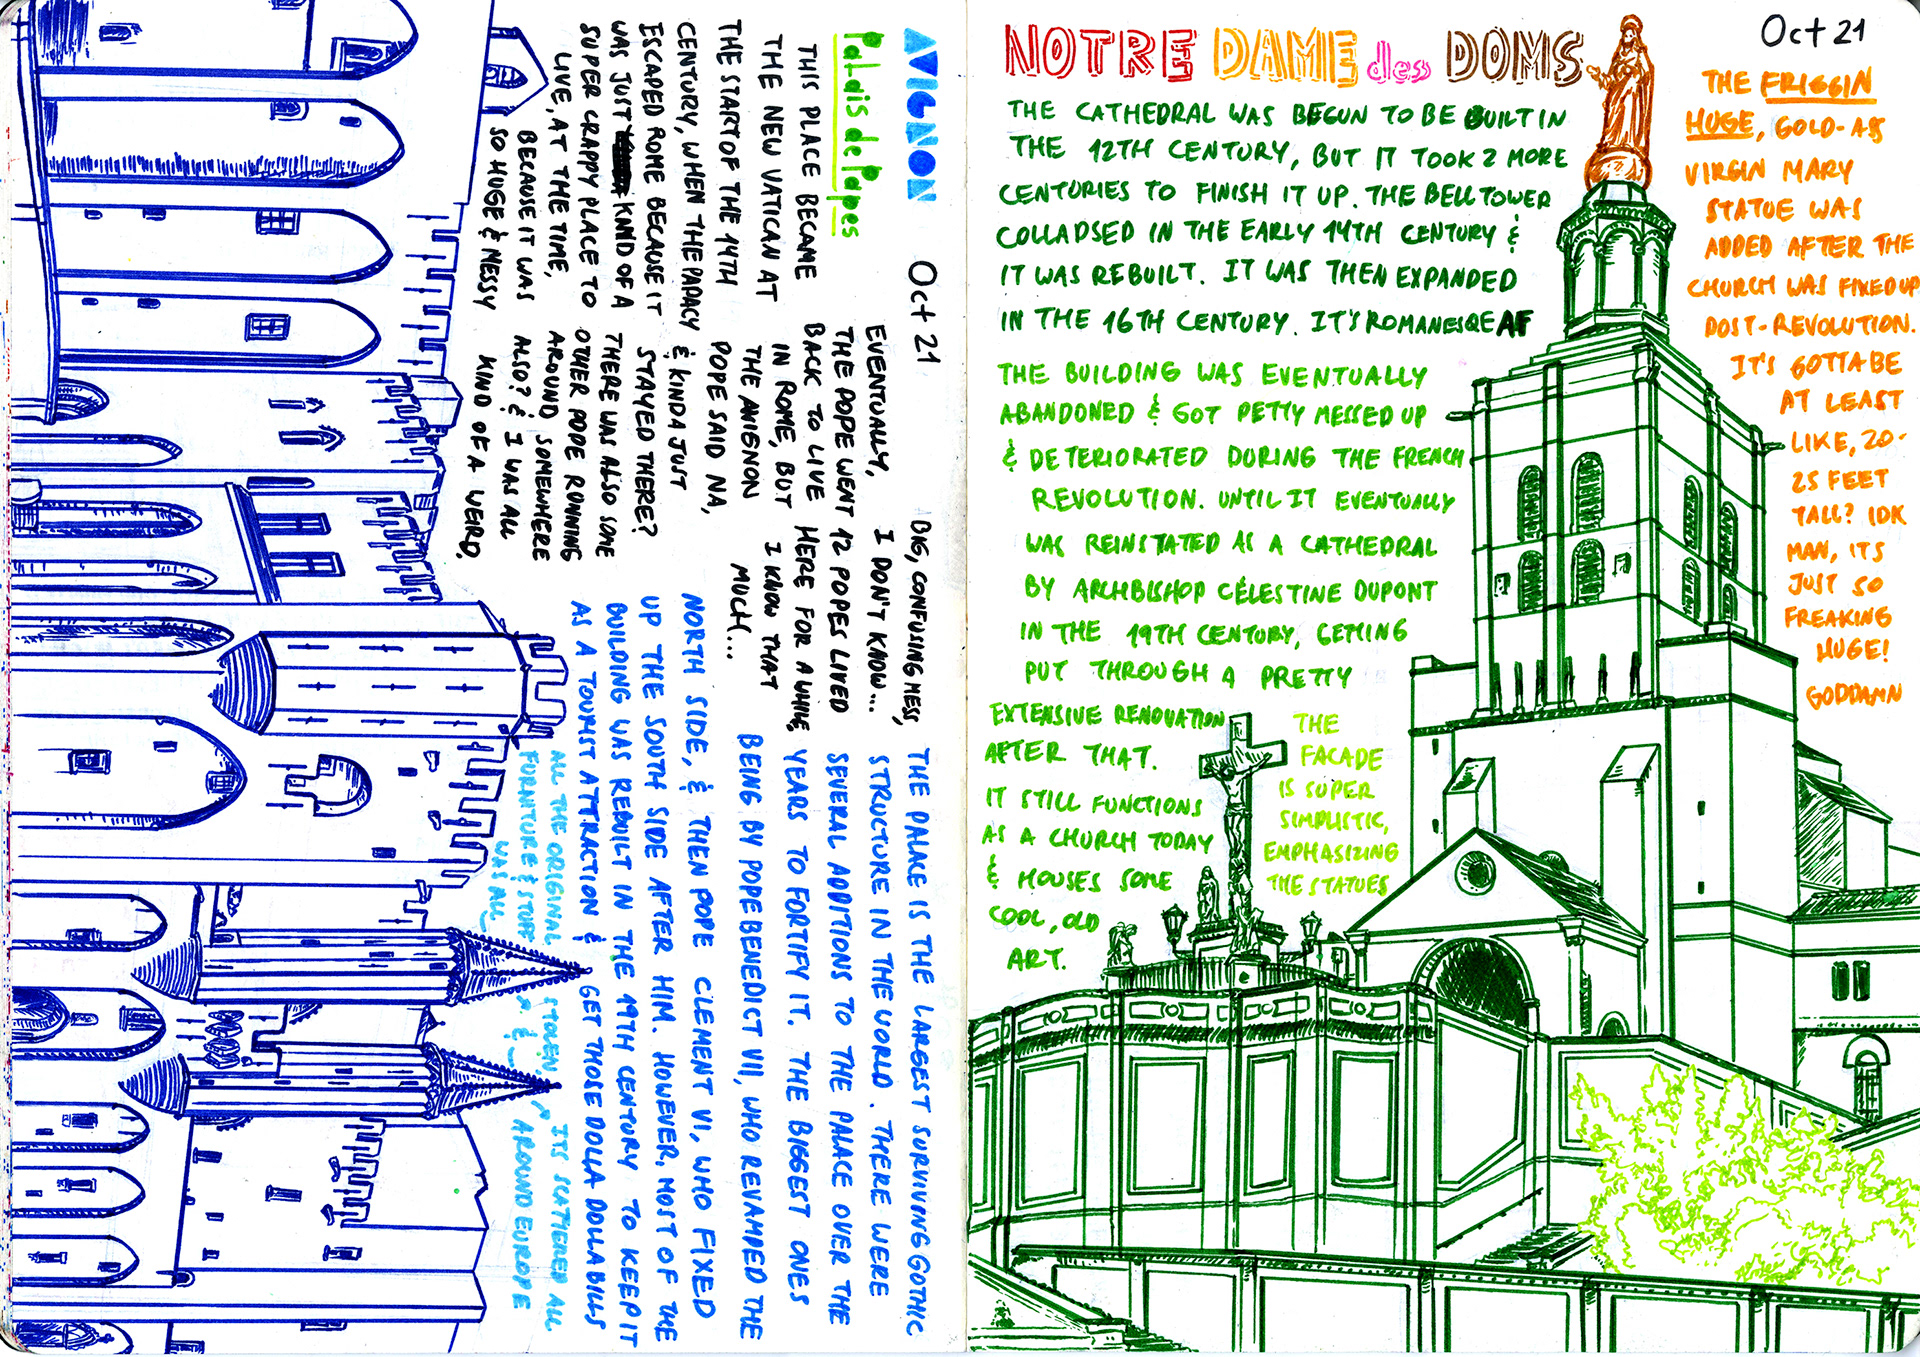 AVIGNON Oct 21
Palais de Papes
THIS PLACE BECAME
THE NEW VATICAN AT
THE START OF THE 14TH
CENTURY, WHEN THE PAPACY
ESCAPED ROME BECAUSE IT
WAS JUST KIND OF A
SUPER CRAPPY PLACE TO
LIVE, AT THE TIME,
BECAUSE IT WAS
SO HUGE & MESSY
EVENTUALLY,
THE POPE WENT
BACK TO LIVE
IN ROME, BUT
THE AVIGNON
POPE SAID NA,
& KINDA JUST
STAYED THERE?
THERE WAS ALSO SOME
OTHER POPE RUNNING
AROUND SOMEWHERE
ALSO? & I WAS ALL
KIND OF A WEIRD,
BIG, CONFUSING MESS,
I DON'T KNOW...
12 POPES LIVED
HERE FOR A WHILE,
I KNOW THAT
MUCH...
THE PALACE IS THE LARGEST SURVIVING GOTHIC
STRUCTURE IN THE WORLD. THERE WERE
SEVERAL ADDITIONS TO THE PALACE OVER THE
YEARS TO FORTIFY IT. THE BIGGEST ONES
BEING BY POPE BENEDICT VII, WHO REVAMPED THE
NORTH SIDE, & THEN POPE CLEMENT VI, WHO FIXED
UP THE SOUTH SIDE AFTER HIM. HOWEVER, MOST OF THE
BUILDING WAS REBUILT IN THE 19TH CENTURY TO KEEP IT
AS A TOURIST ATTRACTION & GET THOSE DOLLA DOLLA BILLS
ALL THE ORIGINAL
FORNITURE & STUFF
WAS ALL
STOLEN,
& ITS SCATTERED ALL
AROUND EUROPE
Oct 21
NOTRE DAME des DOMS
THE CATHEDRAL WAS BEGUN TO BE BUILT IN
THE 12TH CENTURY, BUT IT TOOK 2 MORE
CENTURIES TO FINISH IT UP. THE BELL TOWER
COLLAPSED IN THE EARLY 14TH CENTURY &
IT WAS REBUILT. IT WAS THEN EXPANDED
IN THE 16TH CENTURY. IT'S ROMANESQE AF
THE BUILDING WAS EVENTUALLY
ABANDONED & GOT PETTY MESSED UP
& DETERIORATED DURING THE FRENCH
REVOLUTION. UNTIL IT EVENTUALLY
WAS REINSTATED AS A CATHEDRAL
BY ARCHBISHOP CÉLESTINE DUPONT
IN THE 19TH CENTURY, GETTING
PUT THROUGH A PRETTY
EXTENSIVE RENOVATION
AFTER THAT.
IT STILL FUNCTIONS
AS A CHURCH TODAY
& HOUSES SOME
COOL, OLD
ART.
THE
FACADE
IS SUPER
SIMPLISTIC,
EMPHASIZING
THE STATUES
THE FRIGGIN
HUGE, GOLD-ASS
VIRGIN MARY
STATUE WAS
ADDED AFTER THE
CHURCH WAS FIXED UP
POST-REVOLUTION.
IT'S GOTTA BE
AT LEAST
LIKE, 20-
25 FEET
TALL? IDK
MAN, IT'S
JUST SO
FREAKING
HUGE!
GODDAMN